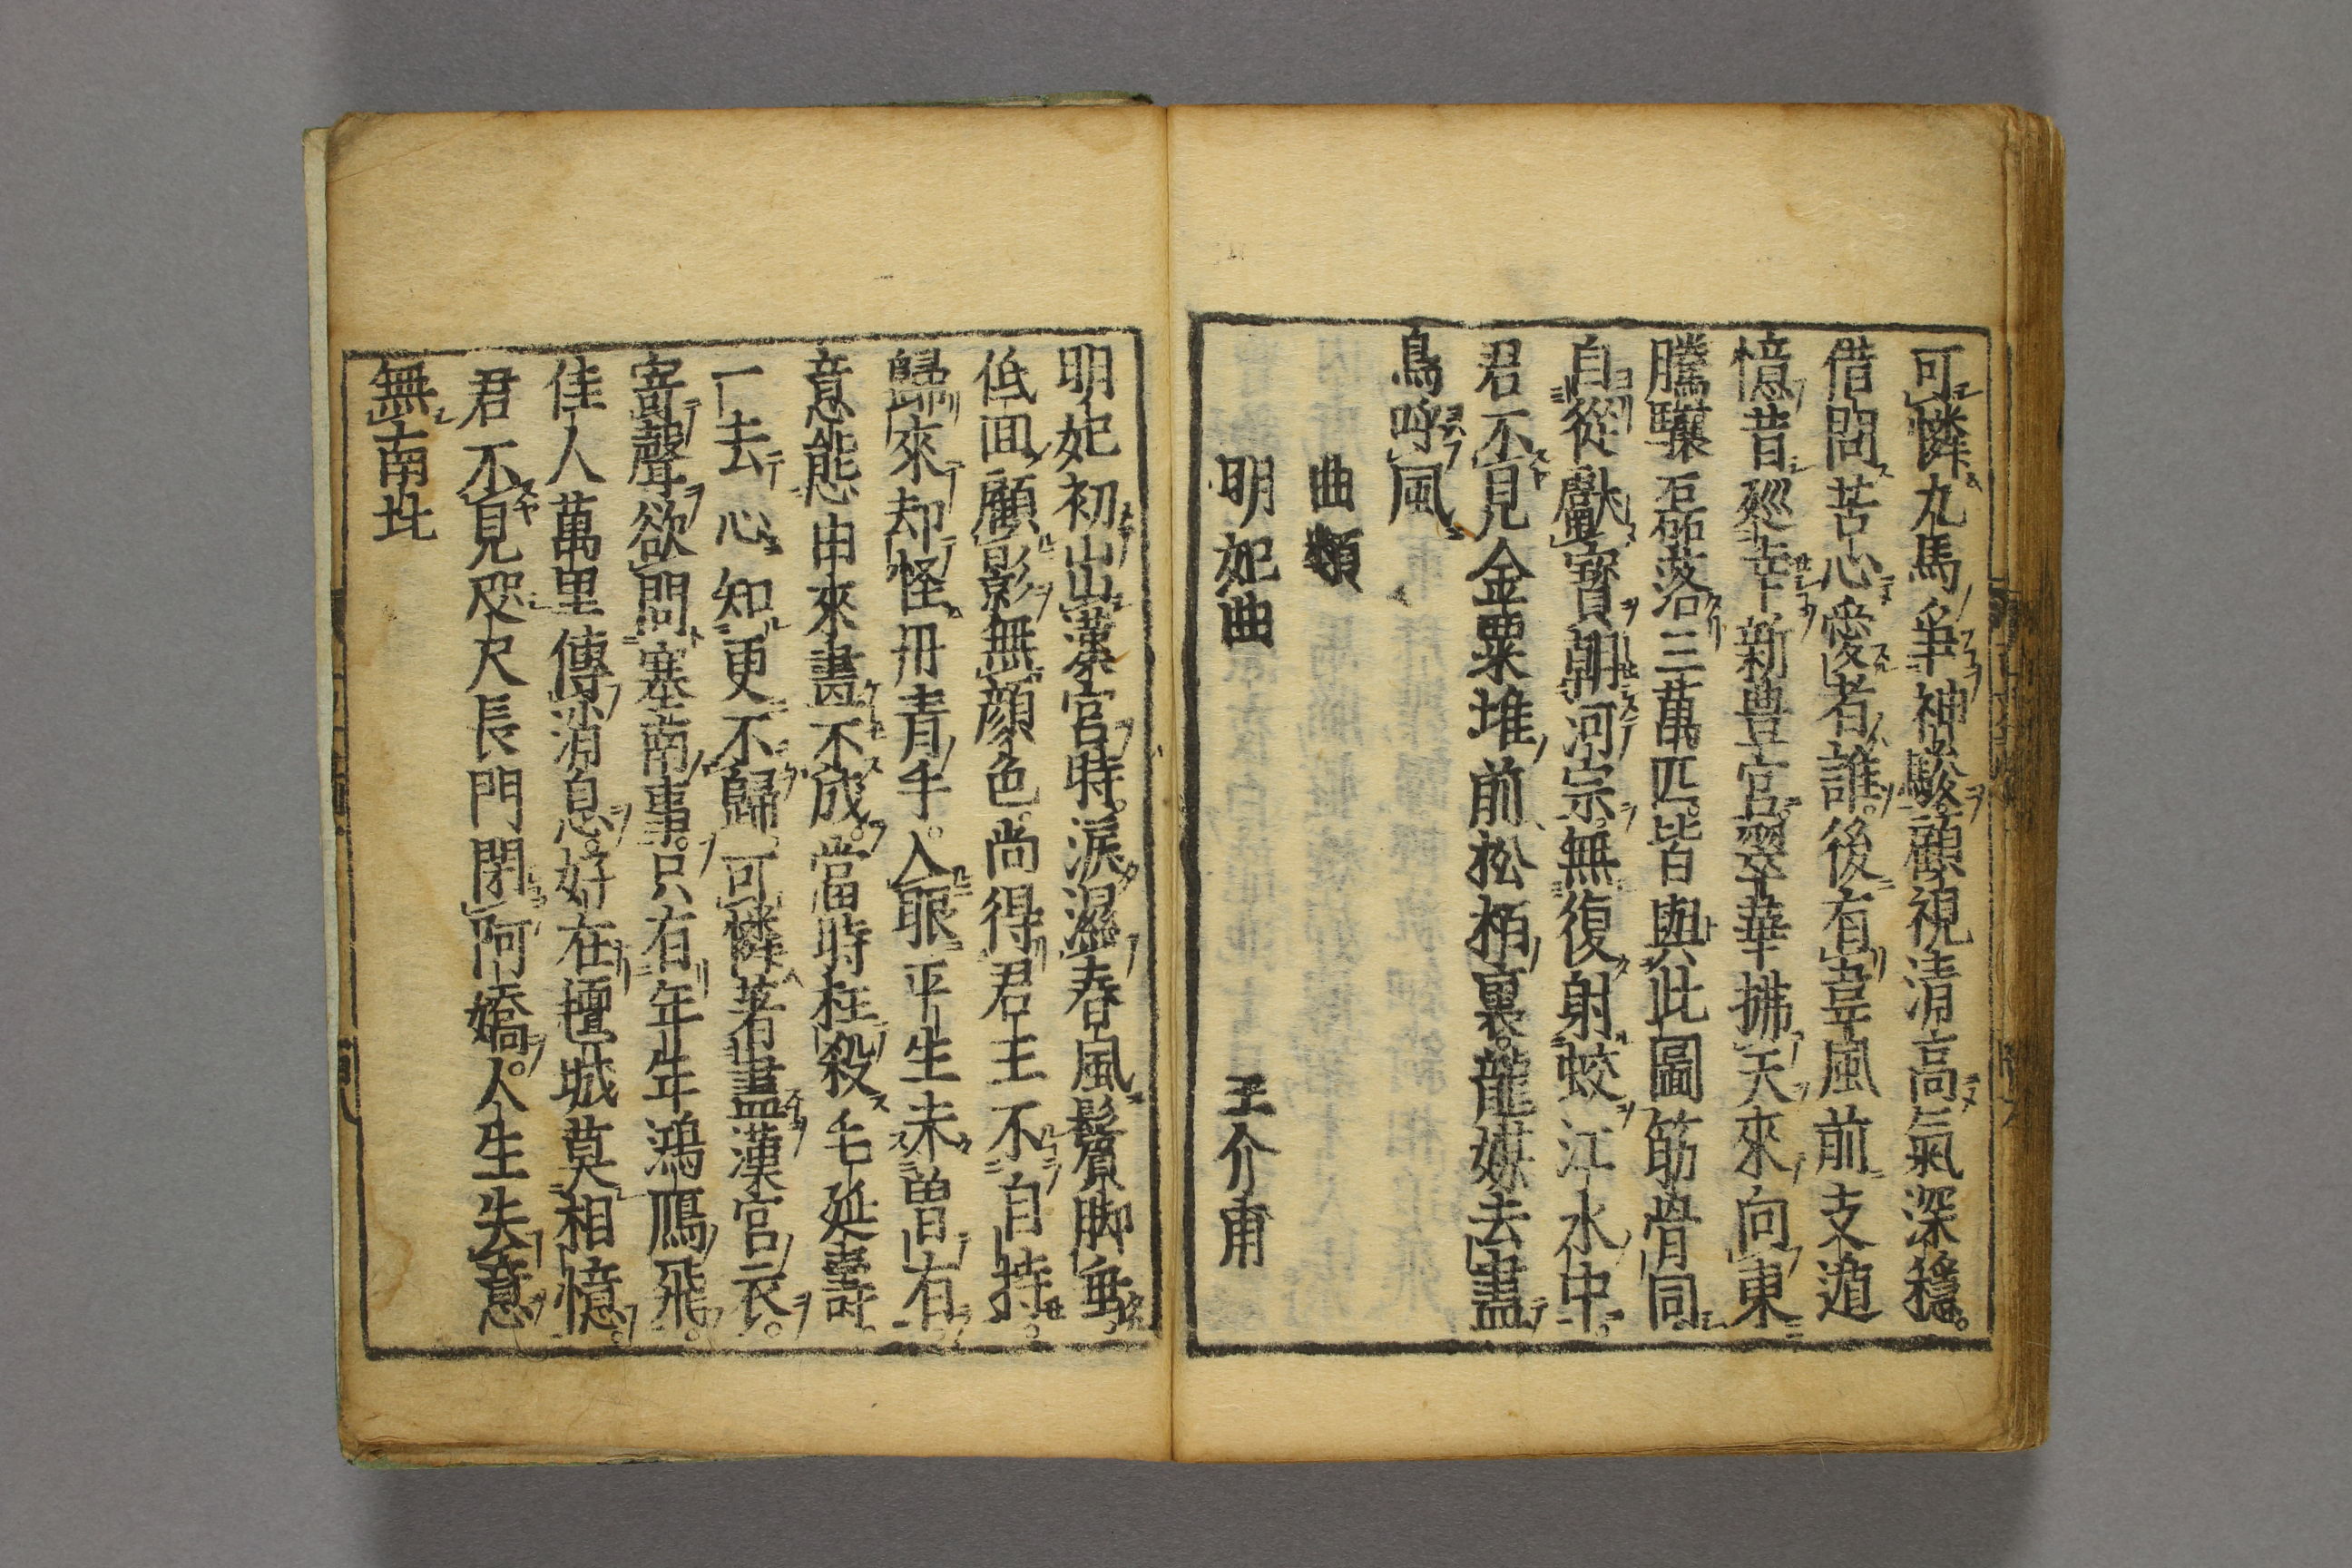 可憐九馬爭神駿。顧視清高氣深穩。
借問苦心愛者誰。後有韋風前支遁
憶昔巡幸新豊宮。翠華拂天來向東
騰驤磊落三萬匹。皆與此圖筋骨同
自從獻寳朝河宗。無復射蛟江水中。
君不見金粟堆前松栢裏。龍媒去盡
鳥呼風
曲類
明妃曲 王介甫
明妃初出漢宮時。淚濕春風鬢脚垂。
低面顧影無顔色。尚得君王不自持。
歸來却怪丹青手。入眼平生未曽有
意態由來畫不成。當時枉殺毛延壽。
一去心知更不歸。可憐著盡漢宮衣。
寄聲欲問塞南事。只有年年鴻鴈飛。
佳人萬里傳消息。好在氊城莫相憶。
君不見咫尺長門閉阿嬌。人生失意
無南北